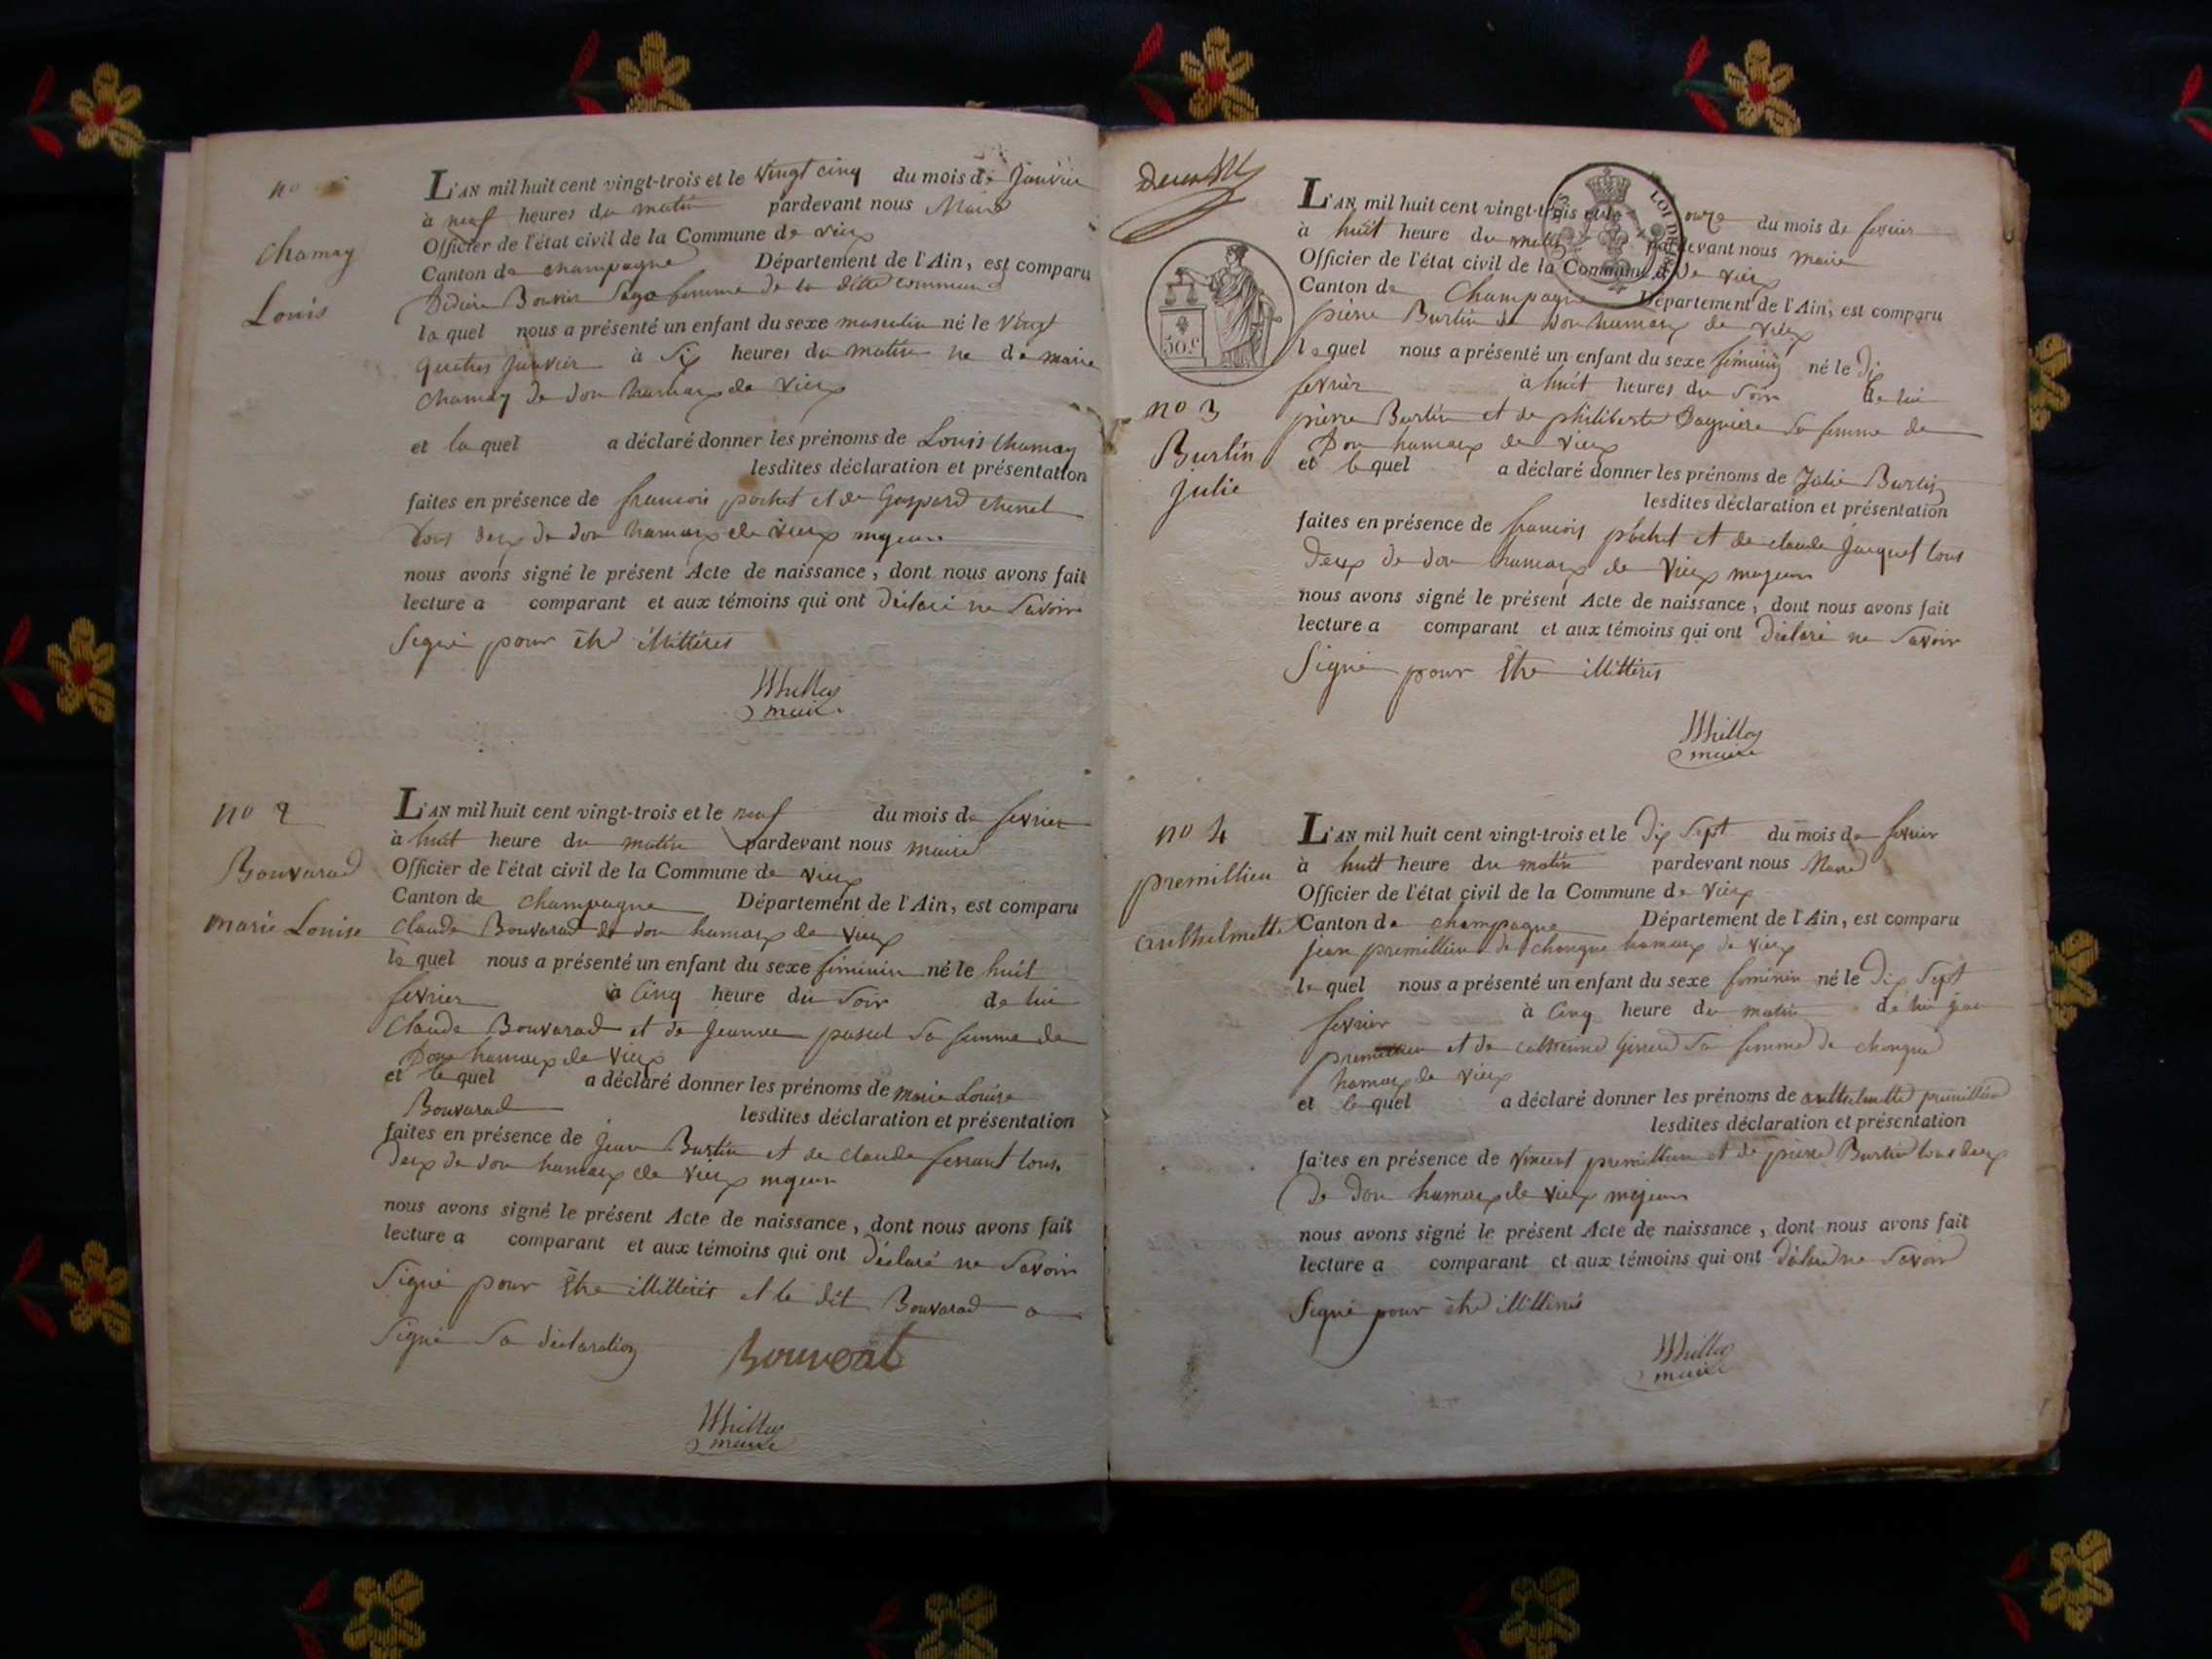 no
Chamay
Louis
L'AN mil huit cent vingt-trois et le vingt cinq du mois de Janvier
à neuf heures du matin pardevant nous Maire
Officier de l'état civil de la Commune de vieux
Canton de champagne Département de l'Ain, est comparu
Bouvier Sage femme de la ditte commune
la quel nous a présenté un enfant du sexe masculin né le vingt
quatres janvier à Six heures du matin ne de marie
Chamay de don hamaux de vieux
et la quel a déclaré donner les prénoms de Louis Chamay
lesdites déclaration et présentation
faites en présence de francois pochet et de Gaspard
tous deux de don hamaux de vieux majeurs
nous avons signé le présent Acte de naissance, dont nous avons fait
lecture a comparant et aux témoins qui ont déclaré ne Savoir
Signé pour être illittérés
maire
no 2
Bouvarad
marie Louise
L'AN mil huit cent vingt-trois et le neuf du mois de fevrier
à huit heure du matin pardevant nous maire
Officier de l'état civil de la Commune de vieux
Canton de champagne Département de l'Ain, est comparu
Claude Bouvarad de don hamaux de vieux
le quel nous a présenté un enfant du sexe féminin né le huit
fevrier à Cinq heure du Soir de lui
Claude Bouvarad et de Jeanne pascal Sa femme de
Don hamaux de vieux
et le quel a déclaré donner les prénoms de marie Louise
Bouvarad lesdites déclaration et présentation
faites en présence de Jean Burtin et de claude ferrant tous
deux de don hamaux de vieux majeurs
nous avons signé le présent Acte de naissance, dont nous avons fait
lecture a comparant et aux témoins qui ont déclaré ne Savoir
Signé pour être illittérés et le dit Bouvarad a
Signé Sa déclaration Bouverat
maire
L'AN mil huit cent vingt-trois et le onze du mois de fevrier
à huit heure du matin pardevant nous maire
Officier de l'état civil de la Commune de vieux
Canton de Champagne Département de l'Ain, est comparu
pierre Burtin de don hamaux de vieux
le quel nous a présenté un enfant du sexe féminin né le dix
fevrier à huit heures du Soir de lui
pierre Burtin et de philiberte Sa femme de
Don hamaux de vieux
et le quel a déclaré donner les prénoms de Julie Burtin
lesdites déclaration et présentation
faites en présence de francois pochet et de claude Jacquet tous
deux de don hamaux de vieux majeurs
nous avons signé le présent Acte de naissance, dont nous avons fait
lecture a comparant et aux témoins qui ont déclaré ne Savoir
Signé pour être illittérés
maire
50.c
no 3
Burtin
Julie
LOI DE
no 4
premillieu
anthelmette
L'AN mil huit cent vingt-trois et le dix Sept du mois de fevrier
à huit heure du matin pardevant nous Maire
Officier de l'état civil de la Commune de vieux
Canton de champagne Département de l'Ain, est comparu
jean premillieu de chongne hamaux de vieux
le quel nous a présenté un enfant du sexe féminin né le dix Sept
fevrier à Cinq heure du matin de lui jean
premillieu et de catherine Sa femme de chongne
hamaux de vieux
et le quel a déclaré donner les prénoms de anthelmette premillieu
lesdites déclaration et présentation
faites en présence de vincent premillieu et de pierre Burtin tous deux
de Don hamaux de vieux majeurs
nous avons signé le présent Acte de naissance, dont nous avons fait
lecture a comparant et aux témoins qui ont déclaré ne Savoir
Signé pour être illittérés
maire